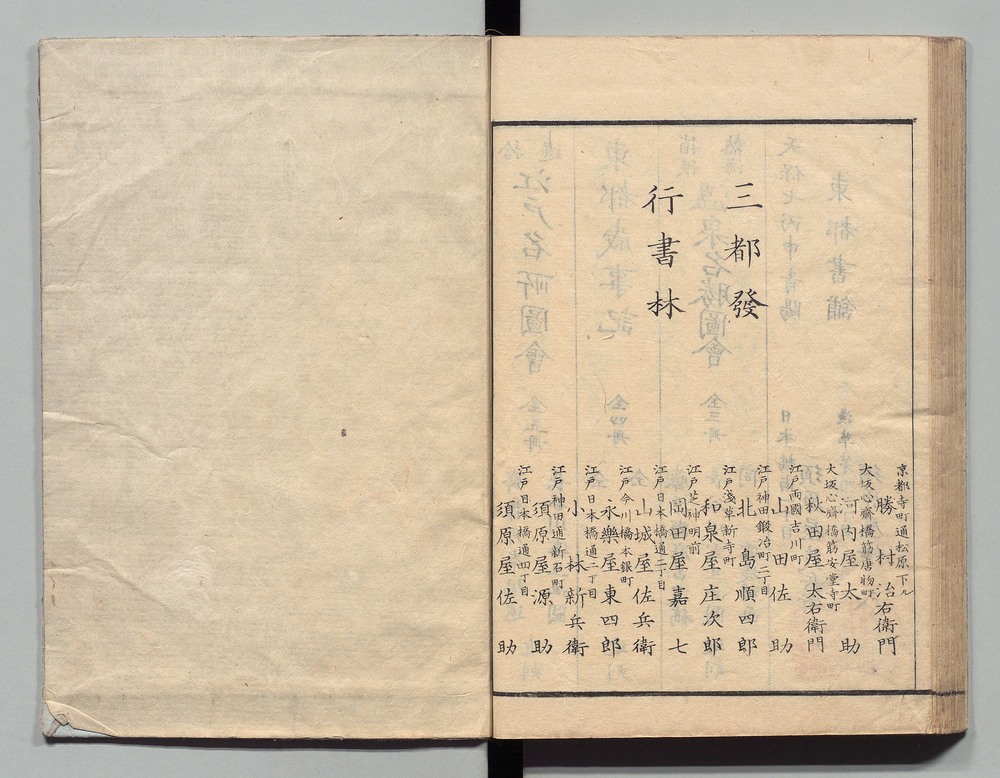 三都發
行書林
京都寺町通松原下ル
勝村治右衛門
大坂心齋橋筋唐物町
河内屋太助
大坂心齋橋筋安堂寺町
秋田屋太右衛門
江戸両國吉川町
山田佐助
江戸神田鍛冶町二丁目
北島順四郎
江戸淺草新寺町
和泉屋庄次郎
江戸芝神明前
岡田屋嘉七
江戸日本橋通二丁目
山城屋佐兵衛
江戸今川橋本銀町
永樂屋東四郎
江戸日本橋通二丁目
小林新兵衛
江戸神田通新石町
須原屋源助
江戸日本橋通四丁目
須原屋佐助